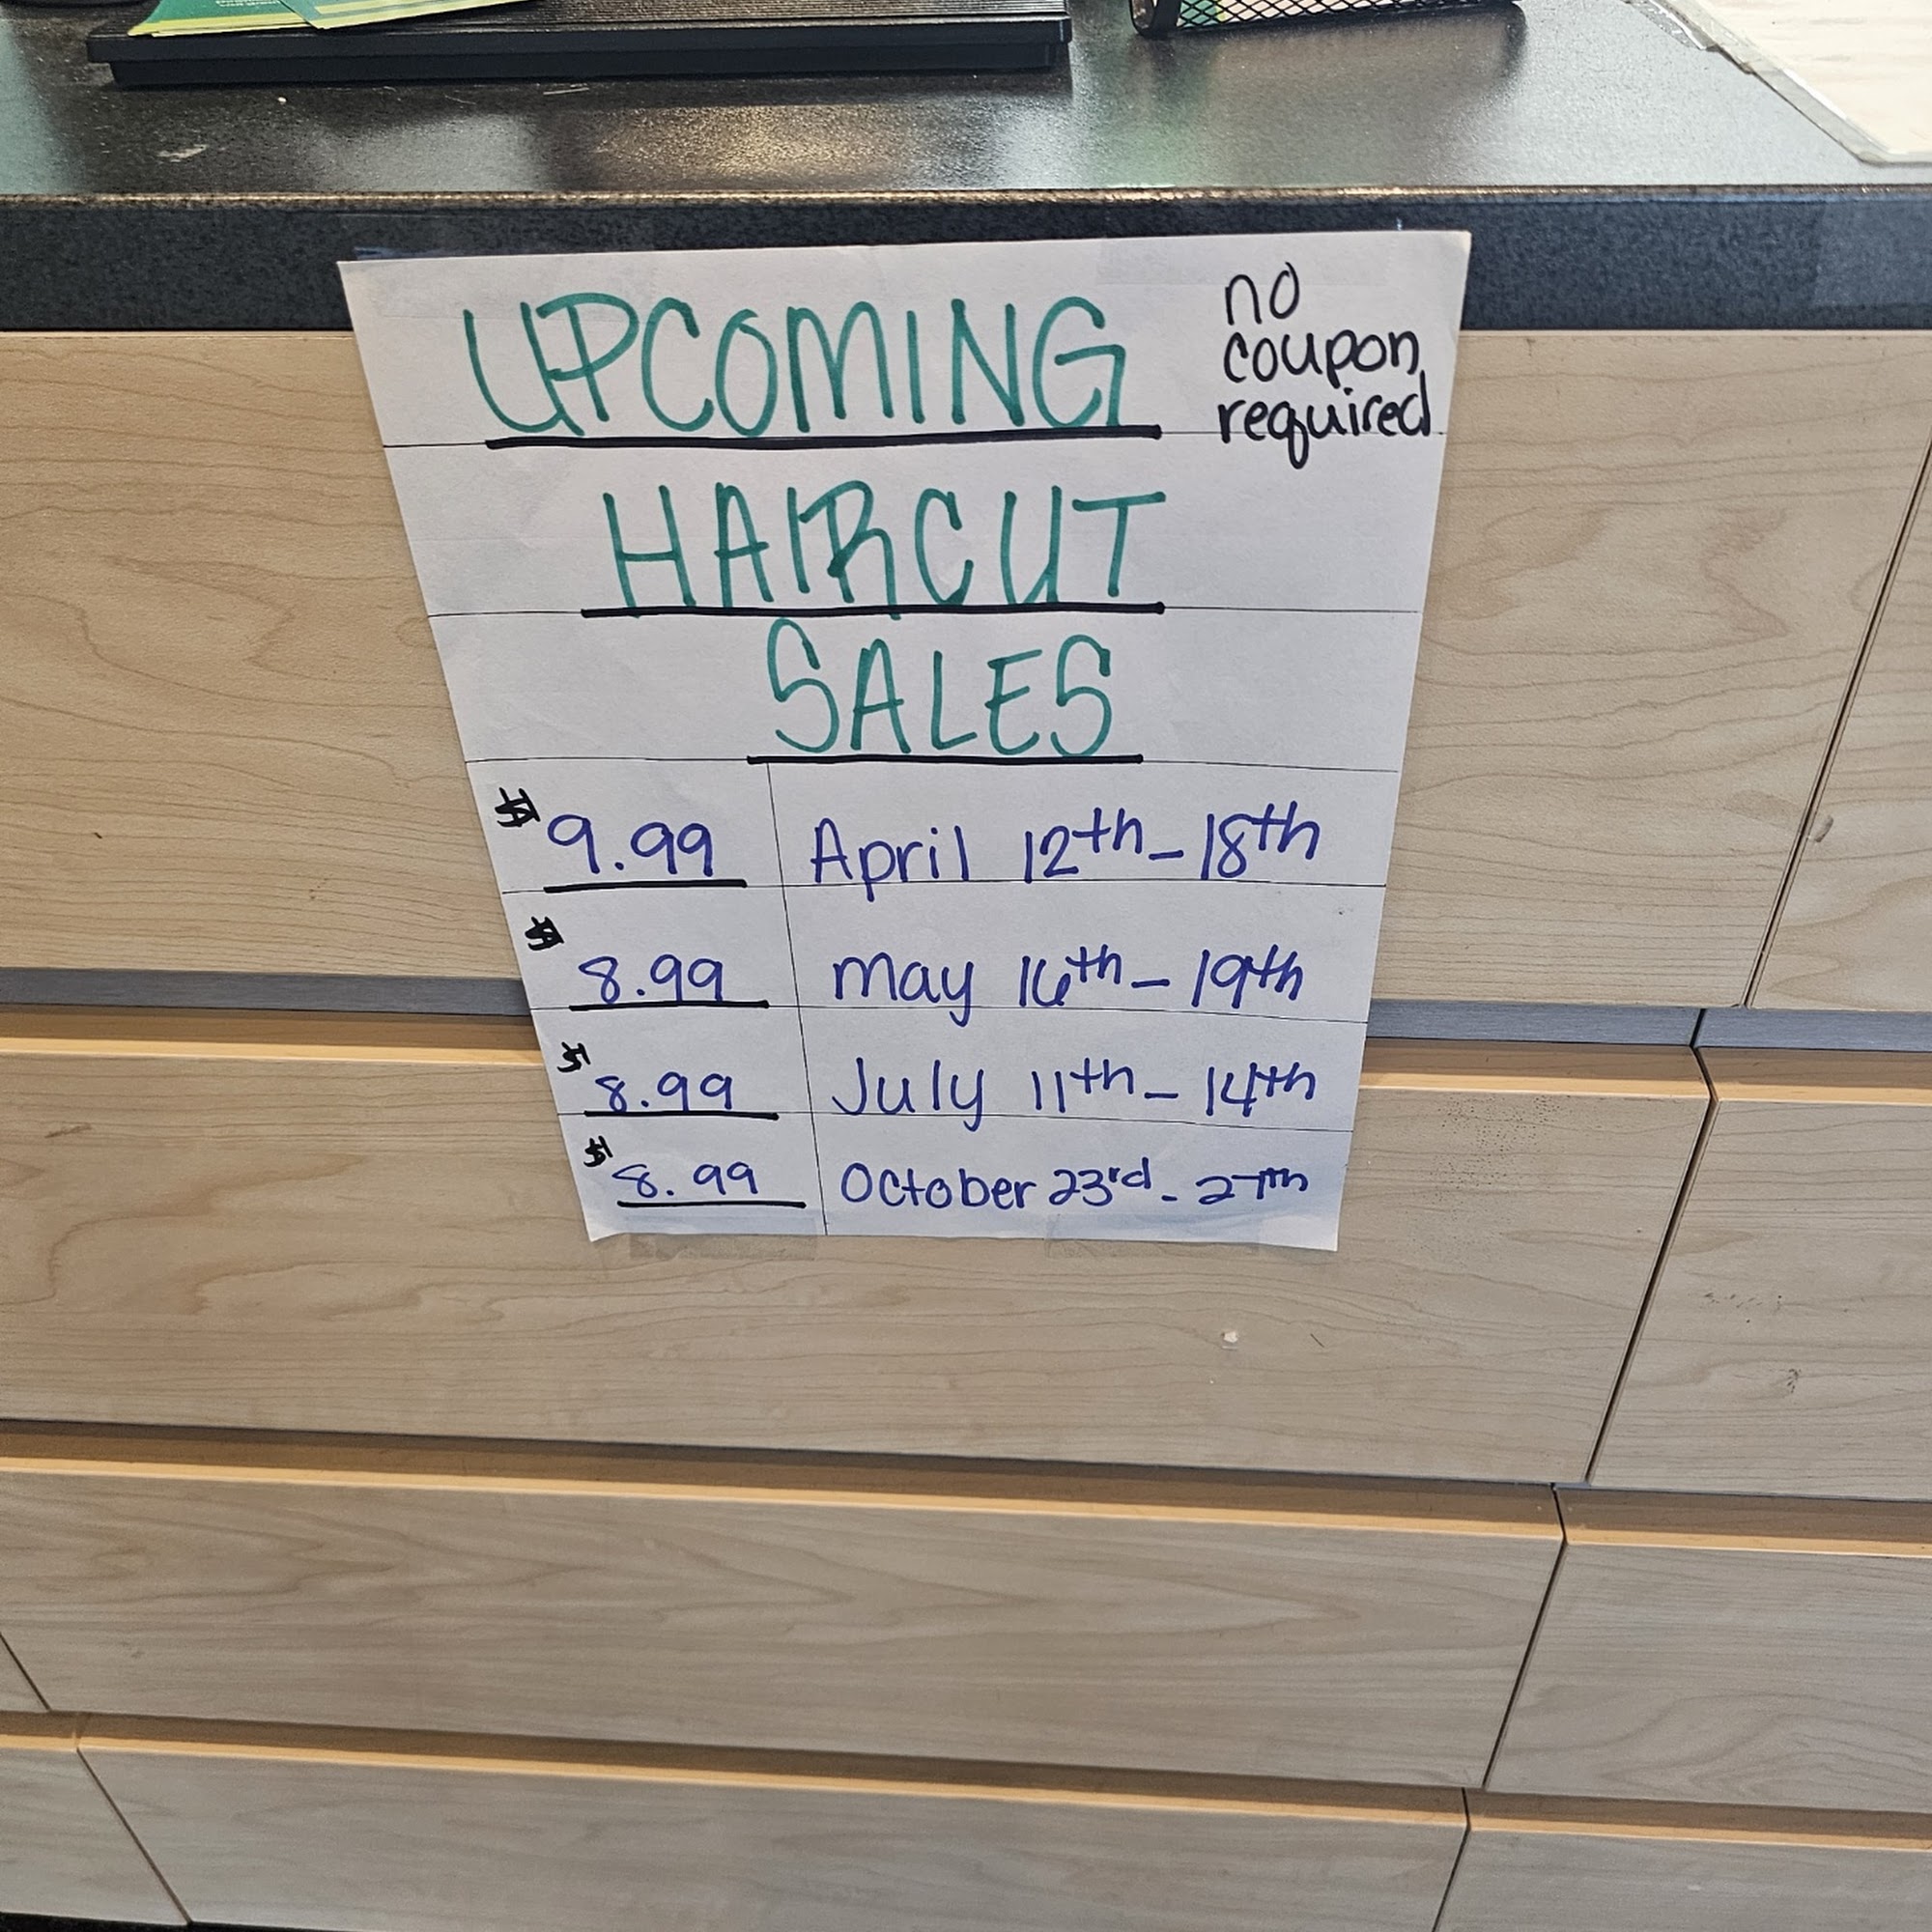 UPCOMING
no
coupon
required
HAIRCUT
SALES
$9.99 April 12th-18th
$8.99 May 16th-19th
$8.99 July 11th-14th
$8.99 October 23rd-27th